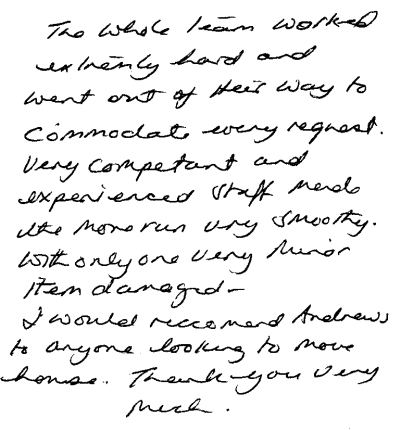 The whole team worked
extremly hard and
went out of their way to
commodate every request.
Very competant and
experienced staff made
the move run very smoothy.
With only one very minor
item damaged -
I would reccomend Andrews
to anyone looking to move
house. Thank-you very
much.